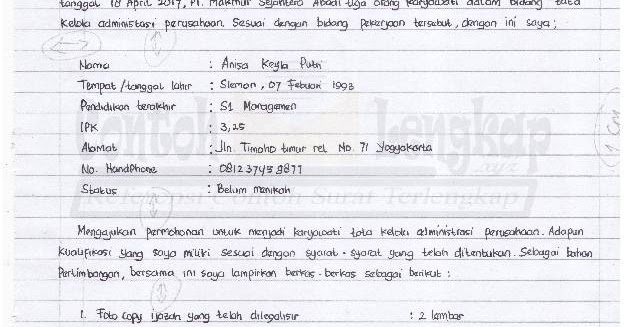 tanggal 18 April 2017, PT. Makmur Sejahtera Abadi tiga orang karyawati dalam bidang tata
Kelola administasi perusahaan. Sesuai dengan bidang pekerjaan tersebut, dengan ini saya;
Nama : Anisa Keyla Putri
Tempat/tanggal lahir : Slemon, 07 Febuari 1993
Pendidikan terakhir : S1 Managemen
IPK : 3,25
Alamat : Jln. Timoho timur rel No. 71 Yogyakarta
No. HandPhone : 081237459877
Status : Belum menikah
Mengajukan permohonan untuk menjadi karyawati tata kelola administrasi perusahaan. Adapun
kualifikasi yang saya miliki sesuai dengan syarat-syarat yang telah ditentukan. Sebagai bahan
Pertimbangan, bersama ini saya lampirkan berkas-berkas sebagai berikut :
1. Foto copy ijazah yang telah dilegalisir : 2 lembar
1 cm